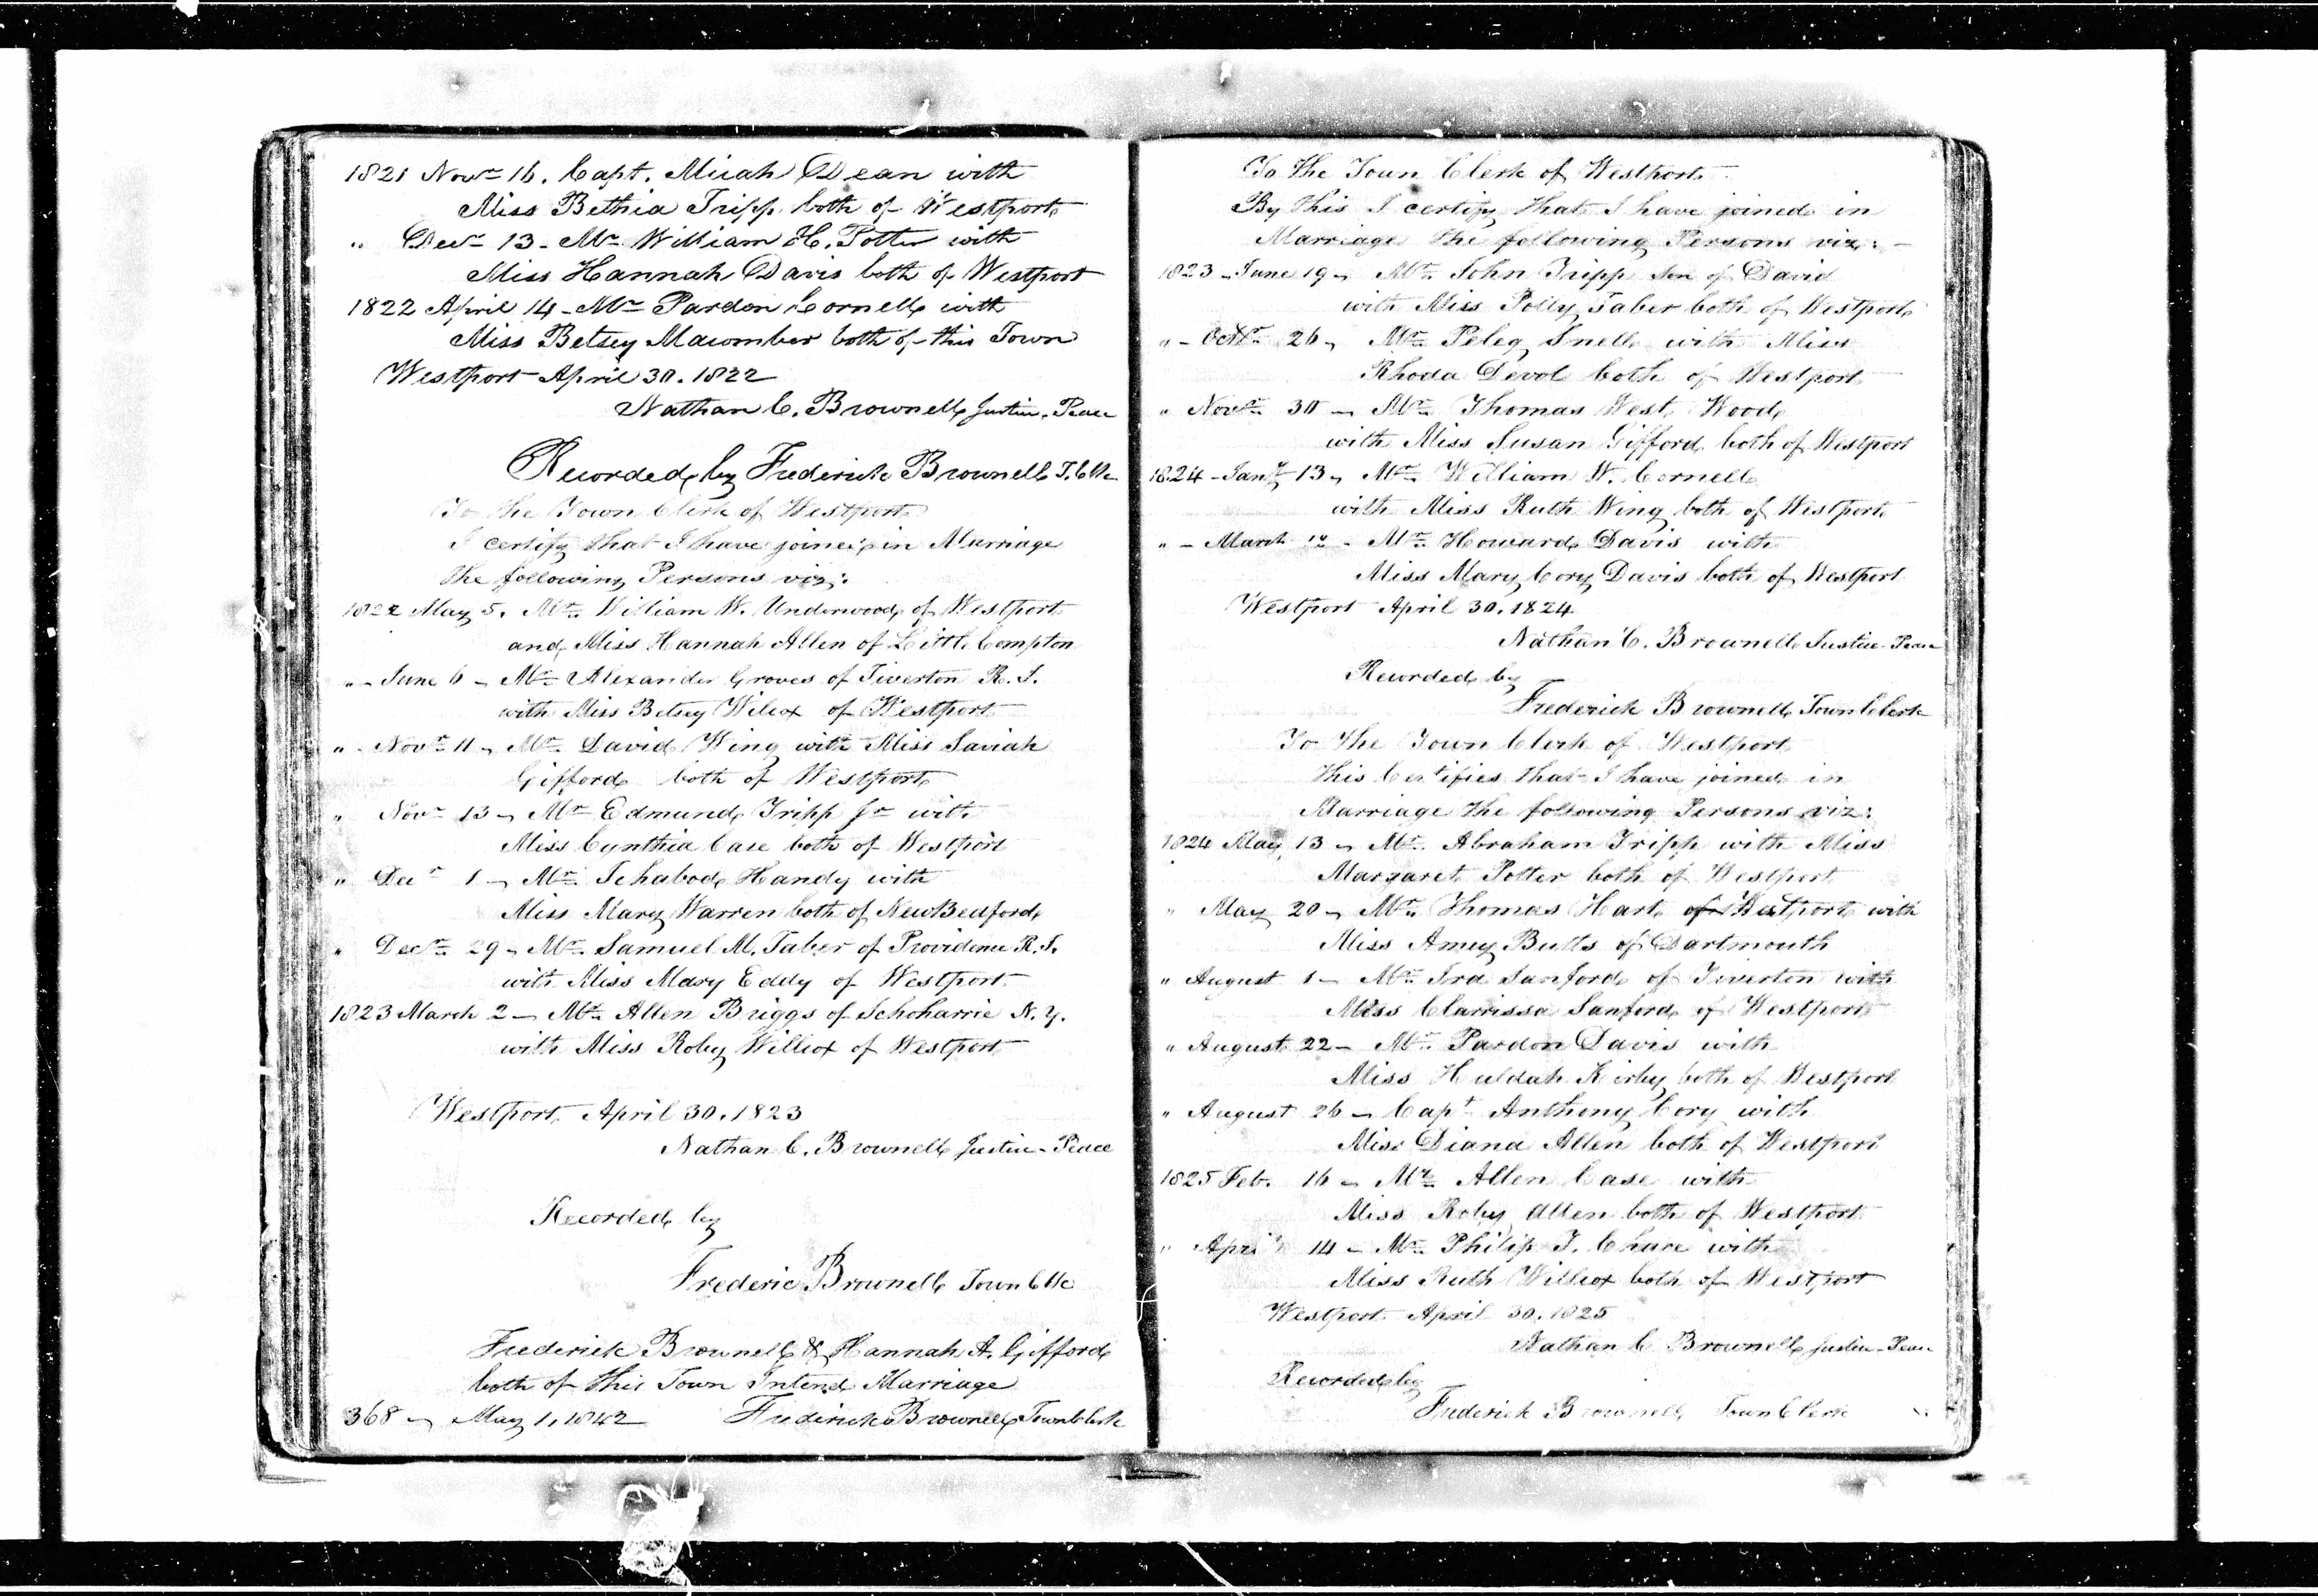 1821 Novr 16. Capt. Micah Dean with
Miss Bethia Tripp both of Westport
" Decr 13 - Mr William H. Potter with
Miss Hannah Davis both of Westport
1822 April 14 - Mr Pardon Cornell with
Miss Betsey Macomber both of this Town
Westport April 30. 1822
Nathan C. Brownell Justice Peace
Recorded by Frederick Brownell T. Clk
To the Town Clerk of Westport
I certify that I have joined in Marriage
the following Persons viz:
1822 May 5. Mr William W. Underwood of Westport
and Miss Hannah Allen of Little Compton
" - June 6 - Mr Alexander Groves of Tiverton R. I.
with Miss Betsey Wilcox of Westport
" - Novr 11 - Mr David Wing with Miss Saviah
Gifford both of Westport
" Novr 13 - Mr Edmund Tripp Jr with
Miss Cynthia Case both of Westport
" Decr 1 - Mr Ichabod Handy with
Miss Mary Warren both of New Bedford
" Decr 29 - Mr Samuel M. Taber of Providence R. I.
with Miss Mary Eddy of Westport
1823 March 2 - Mr Allen Briggs of Schoharrie N. Y.
with Miss Roby Willcox of Westport
Westport April 30. 1823
Nathan C. Brownell Justice - Peace
Recorded by
Frederic Brownell Town Clk
Frederick Brownell & Hannah A. Gifford
both of this Town Intend Marriage
368 - May 1, 1842 Frederick Brownell Town Clerk
To the Town Clerk of Westport
By this I certify that I have joined in
Marriage the following Persons viz: -
1823 - June 19 - Mr John Tripp son of David
with Miss Polly Taber both of Westport
" - Octr 26 - Mr Peleg Snell with Miss
Rhoda Devol both of Westport
" Novr 30 - Mr Thomas West Wood
with Miss Susan Gifford both of Westport
1824 - Jany 13 - Mr William W. Cornell
with Miss Ruth Wing both of Westport
" - March 10 - Mr Howard Davis with
Miss Mary Cory Davis both of Westport
Westport April 30. 1824
Nathan C. Brownell Justice - Peace
Recorded by
Frederick Brownell Town Clerk
To the Town Clerk of Westport
This Certifies that I have joined in
Marriage the following Persons viz:
1824 May 13 - Mr Abraham Tripp with Miss
Margaret Potter both of Westport
" May 20 - Mr Thomas Hart of Westport with
Miss Amey Butts of Dartmouth
" August 1 - Mr Ira Sanford of Tiverton with
Miss Clarrissa Sanford of Westport
" August 22 - Mr Pardon Davis with
Miss Huldah Kirby both of Westport
" August 26 - Capt Anthony Cory with
Miss Diana Allen both of Westport
1825 Feb. 16 - Mr Allen Case with
Miss Roby Allen both of Westport
" April 14 - Mr Philip T. Chace with
Miss Ruth Willcox both of Westport
Westport April 30. 1825
Nathan C Brownell Justice - Peace
Recorded by
Frederick Brownell Town Clerk